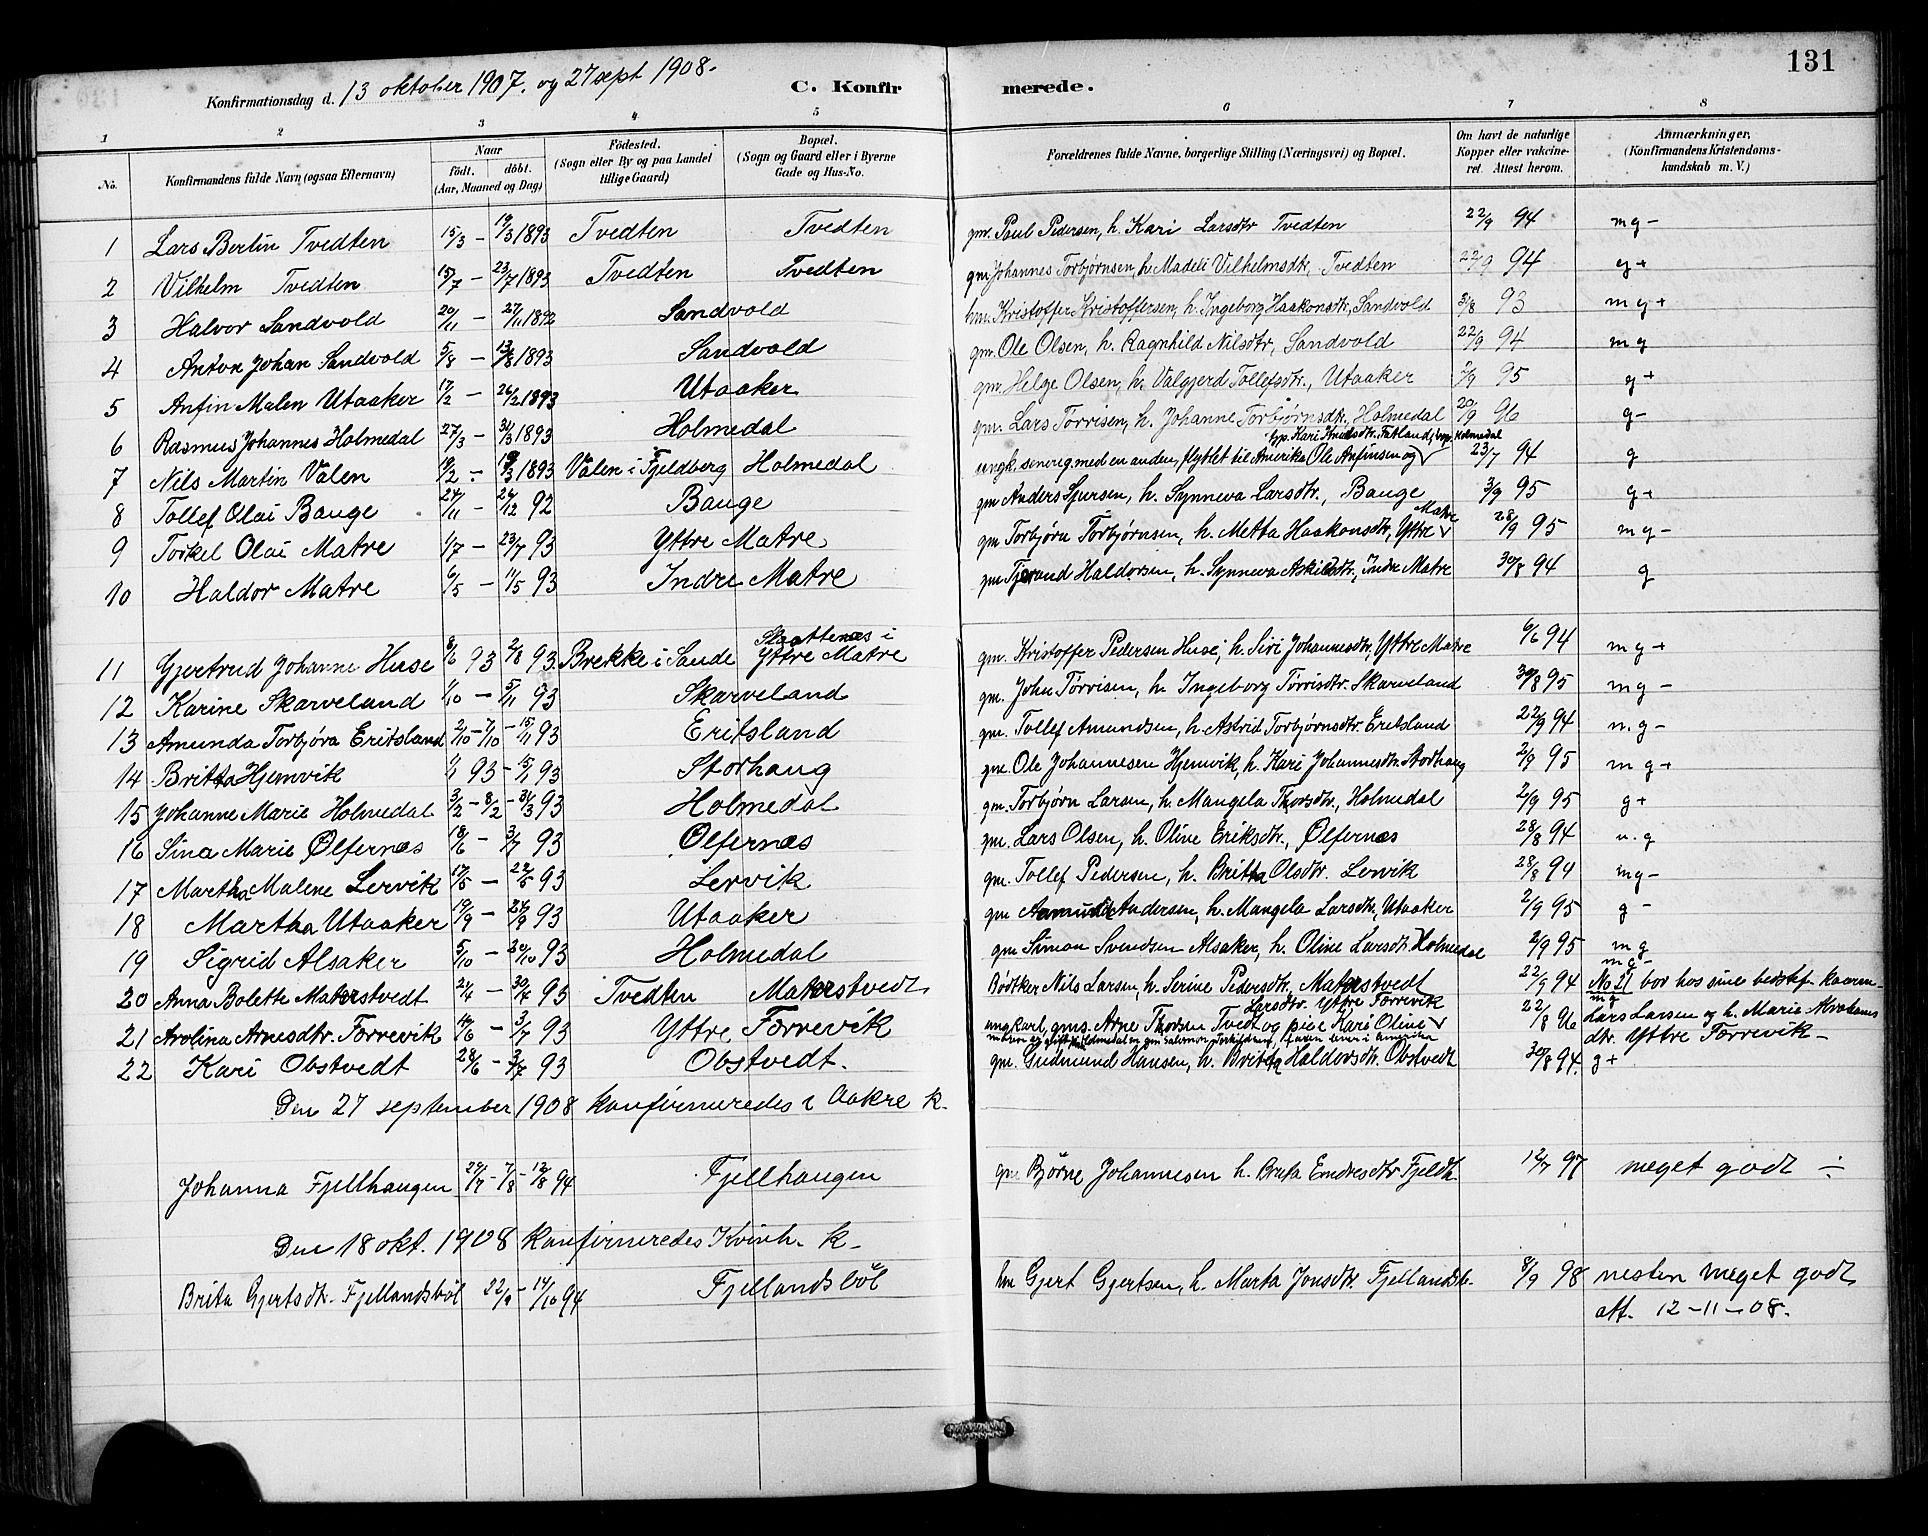 131
Konfirmationsdag d. 13 oktober 1907. og 27 sept 1908.
C. Konfirmerede.
1 2 3 4 5 6 7 8
No. Konfirmandens fulde Navn (ogsaa Efternavn) Naar födt. döbt. (Aar, Maaned og Dag) Födested. (Sogn eller By og paa Landet tillige Gaard) Bopæl. (Sogn og Gaard eller i Byerne Gade og Hus-No. Forældrenes fulde Navne, borgerlige Stilling (Næringsvei) og Bopæl. Om havt de naturlige Kopper eller vakcineret. Attest herom. Anmærkninger. (Konfirmandens Kristendomskundskab m. V.)
1 Lars Bertin Tvedten 15/3 – 19/3 1893 Tvedten Tvedten gm. Paul Pedersen, h. Kari Larsdtr Tvedten 22/9 94 mg –
2 Vilhelm Tvedten 15/7 – 23/7 1893 Tvedten Tvedten gm Johannes Torbjørnsen, h. Madeli Vilhelmsdtr, Tvedten 22/9 94 g +
3 Halvor Sandvold 20/11 – 27/11 1892 Sandvold hm. Kristoffer Kristoffersen, h. Ingeborg Haakonsdtr, Sandvold 3/8 93 mg +
4 Anton Johan Sandvold 5/8 – 13/8 1893 Sandvold gm. Ole Olsen, h. Ragnhild Nilsdtr, Sandvold 22/9 94 mg
5 Anfin Malen Utaaker 17/2 – 26/2 1893 Utaaker gm. Helge Olsen, h. Valgjerd Tollefsdtr., Utaaker 2/9 95 g +
6 Rasmus Johannes Holmedal 27/3 – 31/3 1893 Holmedal gm. Lars Torrisen, h. Johanne Torbjørnsdtr, Holmedal 20/9 96 g –
7 Nils Martin Valen 19/2 – 19/3 1893 Valen i Fjeldberg Holmedal ungk. senere g. med en anden, flyttet til Amerika Ole Anfinsen og 23/7 94 g
8 Tollef Olai Bauge 24/11 – 26/12 92 Bauge gm Anders Sjursen, h. Synneva Larsdtr., Bauge 3/9 95 g +
9 Torkel Olai Matre 1/7 – 23/7 93 Yttre Matre gm Torbjørn Torbjørnsen, h. Metta Haakonsdtr, Yttre Matre 28/9 95 mg –
10 Haldor Matre 6/5 – 11/5 93 Indre Matre gm Tjerand Haldorsen, h. Synneva Askildsdtr, Indre Matre 30/8 94 g
11 Gjertrud Johanne Huse 8/6 93 2/8 93 Brekke i Sande Skattenæs i Yttre Matre gm. Kristoffer Pedersen Huse, h. Siri Johannesdtr, Yttre Matre 6/6 94 mg +
12 Karine Skarveland 1/10 – 5/11 93 Skarveland gm. John Torrisen, h. Ingeborg Torrisdtr. Skarveland 30/8 95 mg –
13 Amunda Torbjøra Eritsland 2/10 – 7/10 – 15/11 93 Eritsland gm. Tollef Amundsen, h. Astrid Torbjørnsdtr. Eritsland 22/9 94 n. g –
14 Britta Hjemvik 1/1 93 – 15/1 93 Storhaug gm. Ole Johannesen Hjemvik, h. Kari Johannesdtr. Storhaug 2/9 95 mg +
15 Johanne Marie Holmedal 3/2 – 8/2 – 31/3 93 Holmedal gm. Torbjørn Larsen, h. Mangela Thorsdtr., Holmedal 2/9 95 g +
16 Sina Marie Ølfernæs 18/6 – 3/7 93 Ølfernæs gm. Lars Olsen, h. Oline Eriksdtr., Ølfernæs 28/8 94 n. g
17 Martha Malene Lervik 17/5 – 22/5 93 Lervik gm. Tollef Pedersen, h. Britta Olsdtr. Lervik 28/8 94 mg –
18 Martha Utaaker 19/9 – 24/9 93 Utaaker gm Aamund Andersen, h. Mangela Larsdtr, Utaaker 2/9 95 g –
19 Sigrid Alsaker 5/10 – 20/10 93 Holmedal gm Simon Svendsen Alsaker, h. Oline Larsdtr. Holmedal 2/9 95 mg
20 Anna Bolette Materstvedt 24/4 – 30/7 93 Tvedten Materstvedt Bødtker Nils Larsen, h. Serine Pedersdtr, Materstvedt 22/9 94 mg – No 21 bor hos sine bedstef. kaaren
21 Arolina Arnesdtr. Torrevik 14/6 – 3/7 93 Yttre Torrevik ungkarl, gms. Arne Thorsen Tvedt og pige Kari Oline Larsdtr. Yttre Torrevik 22/8 96 mg Lars Larsen og h. Marie Abrahamsdtr. Yttre Torrevik –
22 Kari Obstvedt 28/6 – 3/7 93 Obstvedt. gm. Gudmund Hansen, h. Britta Haldorsdtr. Obstvedt 30/8 94. g +
Den 27 september 1908 konfirmeredes i Aakre k.
Johanna Fjellhaugen 29/7 – 7/8 – 12/8 94 Fjellhaugen gm Bjørne Johannesen h. Brita Endresdtr Fjeldh. 12/7 97 meget godt ÷
Den 18 okt. 1908 konfirmeredes Kvinh. k.
Brita Gjertsdtr. Fjellandsböl 22/9 – 14/10 94 Fjellandsböl hm Gjert Gjertsen, h. Marta Jonsdtr. Fjellandsb. 8/9 98 nesten meget godt
att. 12–11–08.